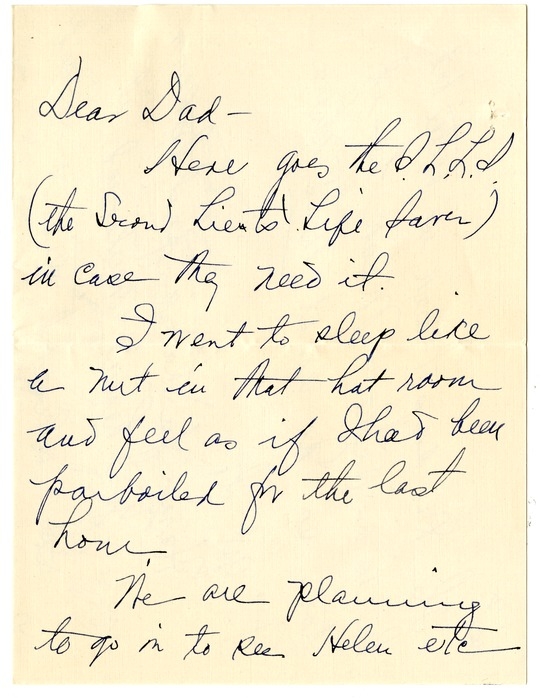 Dear Dad –
Here goes the S.L.L.S.
(the Second Lieuts' Life Saver)
in case they need it.
I went to sleep like
a nut in that hot room
and feel as if I had been
parboiled for the last
hour
We are planning
to go in to see Helen etc